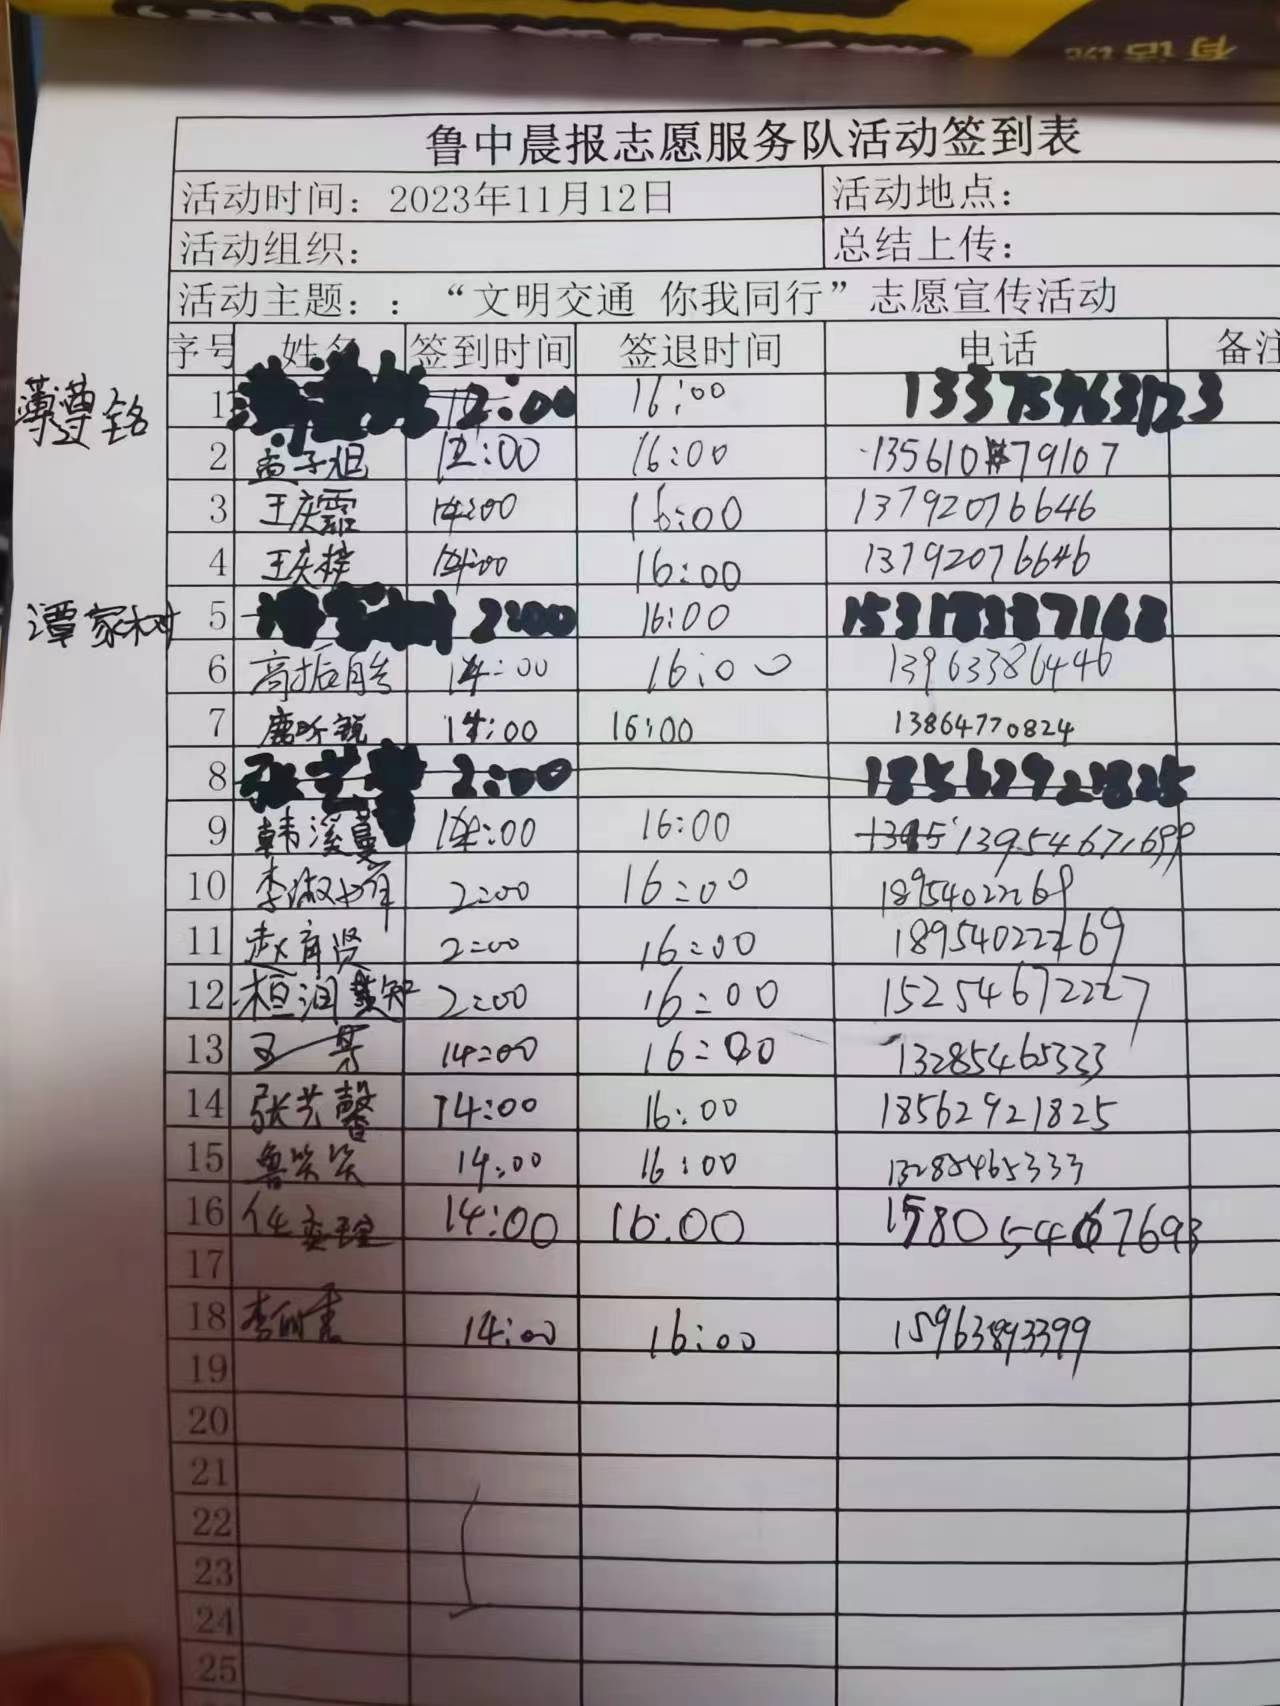 有话说
鲁中晨报志愿服务队活动签到表
活动时间：2023年11月12日 活动地点：
活动组织： 总结上传：
活动主题：：“文明交通 你我同行”志愿宣传活动
序号 姓名 签到时间 签退时间 电话 备注
薄遵铭 1 2:00 16:00 13375463123
2 孟子恒 12:00 16:00 13561079107
3 王庆霏 14:00 16:00 13792076646
4 王庆梓 14:00 16:00 13792076646
潭家树 5 2:00 16:00
6 高振皓 14:00 16:00 13963386446
7 鹿昕锐 14:00 16:00 13864770824
8 张艺馨 2:00 18562921825
9 韩溪蔓 14:00 16:00 13954671699
10 李淑 2:00 16:00 18954022269
11 赵育贤 2:00 16:00 18954022269
12 桓润 2:00 16:00 15254672227
13 王芳 14:00 16:00 13285465333
14 张艺馨 14:00 16:00 18562921825
15 鲁笑笑 14:00 16:00 13285465333
16 任 14:00 16:00
17
18 李 14:00 16:00 15963893399
19
20
21
22
23
24
25